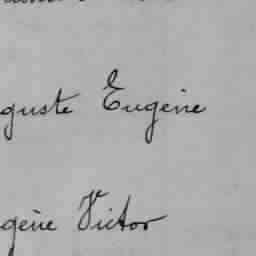 guste Eugène
gène Victor